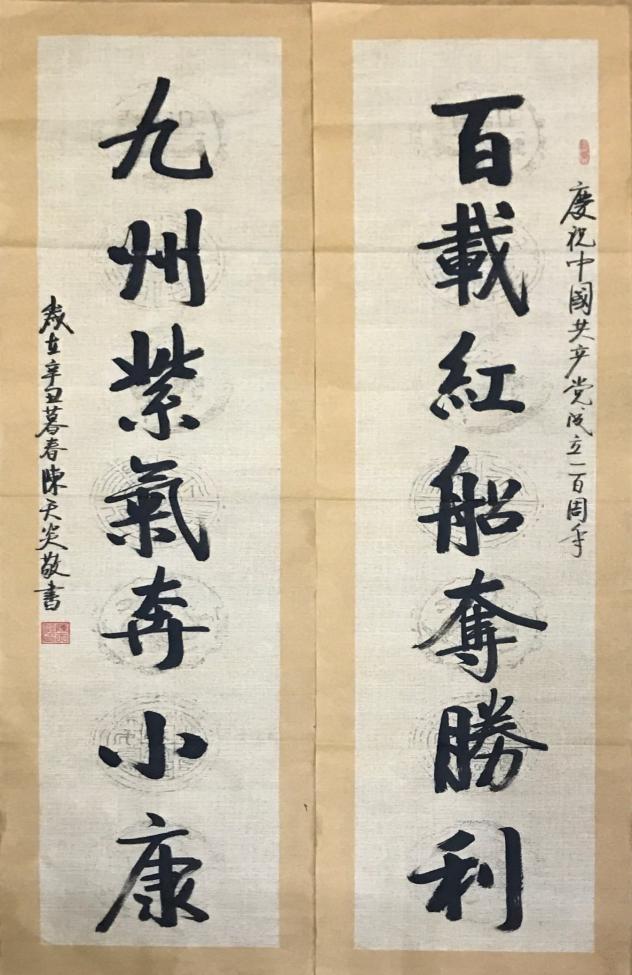 慶祝中國共产党成立一百周年
百載紅船奪勝利
九州紫氣奔小康
歲在辛丑暮春陳天炎敬書